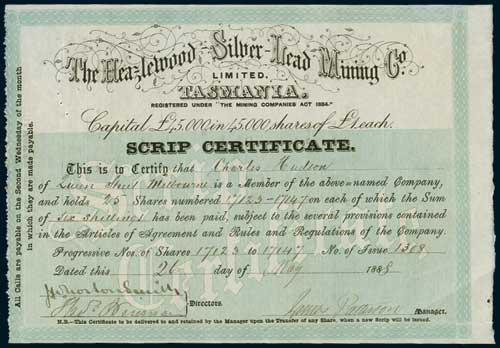 The Heazlewood Silver-Lead Mining Co.
LIMITED.
TASMANIA.
REGISTERED UNDER "THE MINING COMPANIES ACT 1884."
Capital £45,000 in 45,000 shares of £1 each.
SCRIP CERTIFICATE.
This is to Certify that Charles Hudson
of Queen Street Melbourne is a Member of the above=named Company,
and holds 25 Shares numbered 17123-17147 on each of which the Sum
of Six shillings has been paid, subject to the several provisions contained
in the Articles of Agreement and Rules and Regulations of the Company.
Progressive Nos. of Shares 17123 to 17147 No. of Issue 1308
Dated this 26 day of May 188
Directors.
Manager.
N.B.—This Certificate to be delivered to and retained by the Manager upon the Transfer of any Share, when a new Scrip will be issued.
All Calls are payable on the Second Wednesday of the month
in which they are made payable.